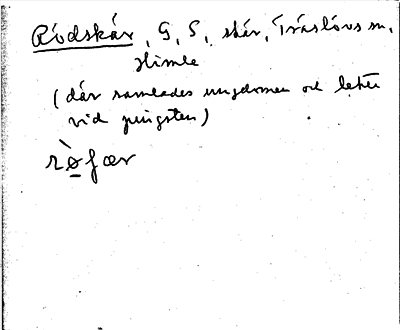 Rödskär, G, S, skär, Träslövs sn,
Himle
(där samlades ungdomen och lekte
vid pingsten)
rø̀fær